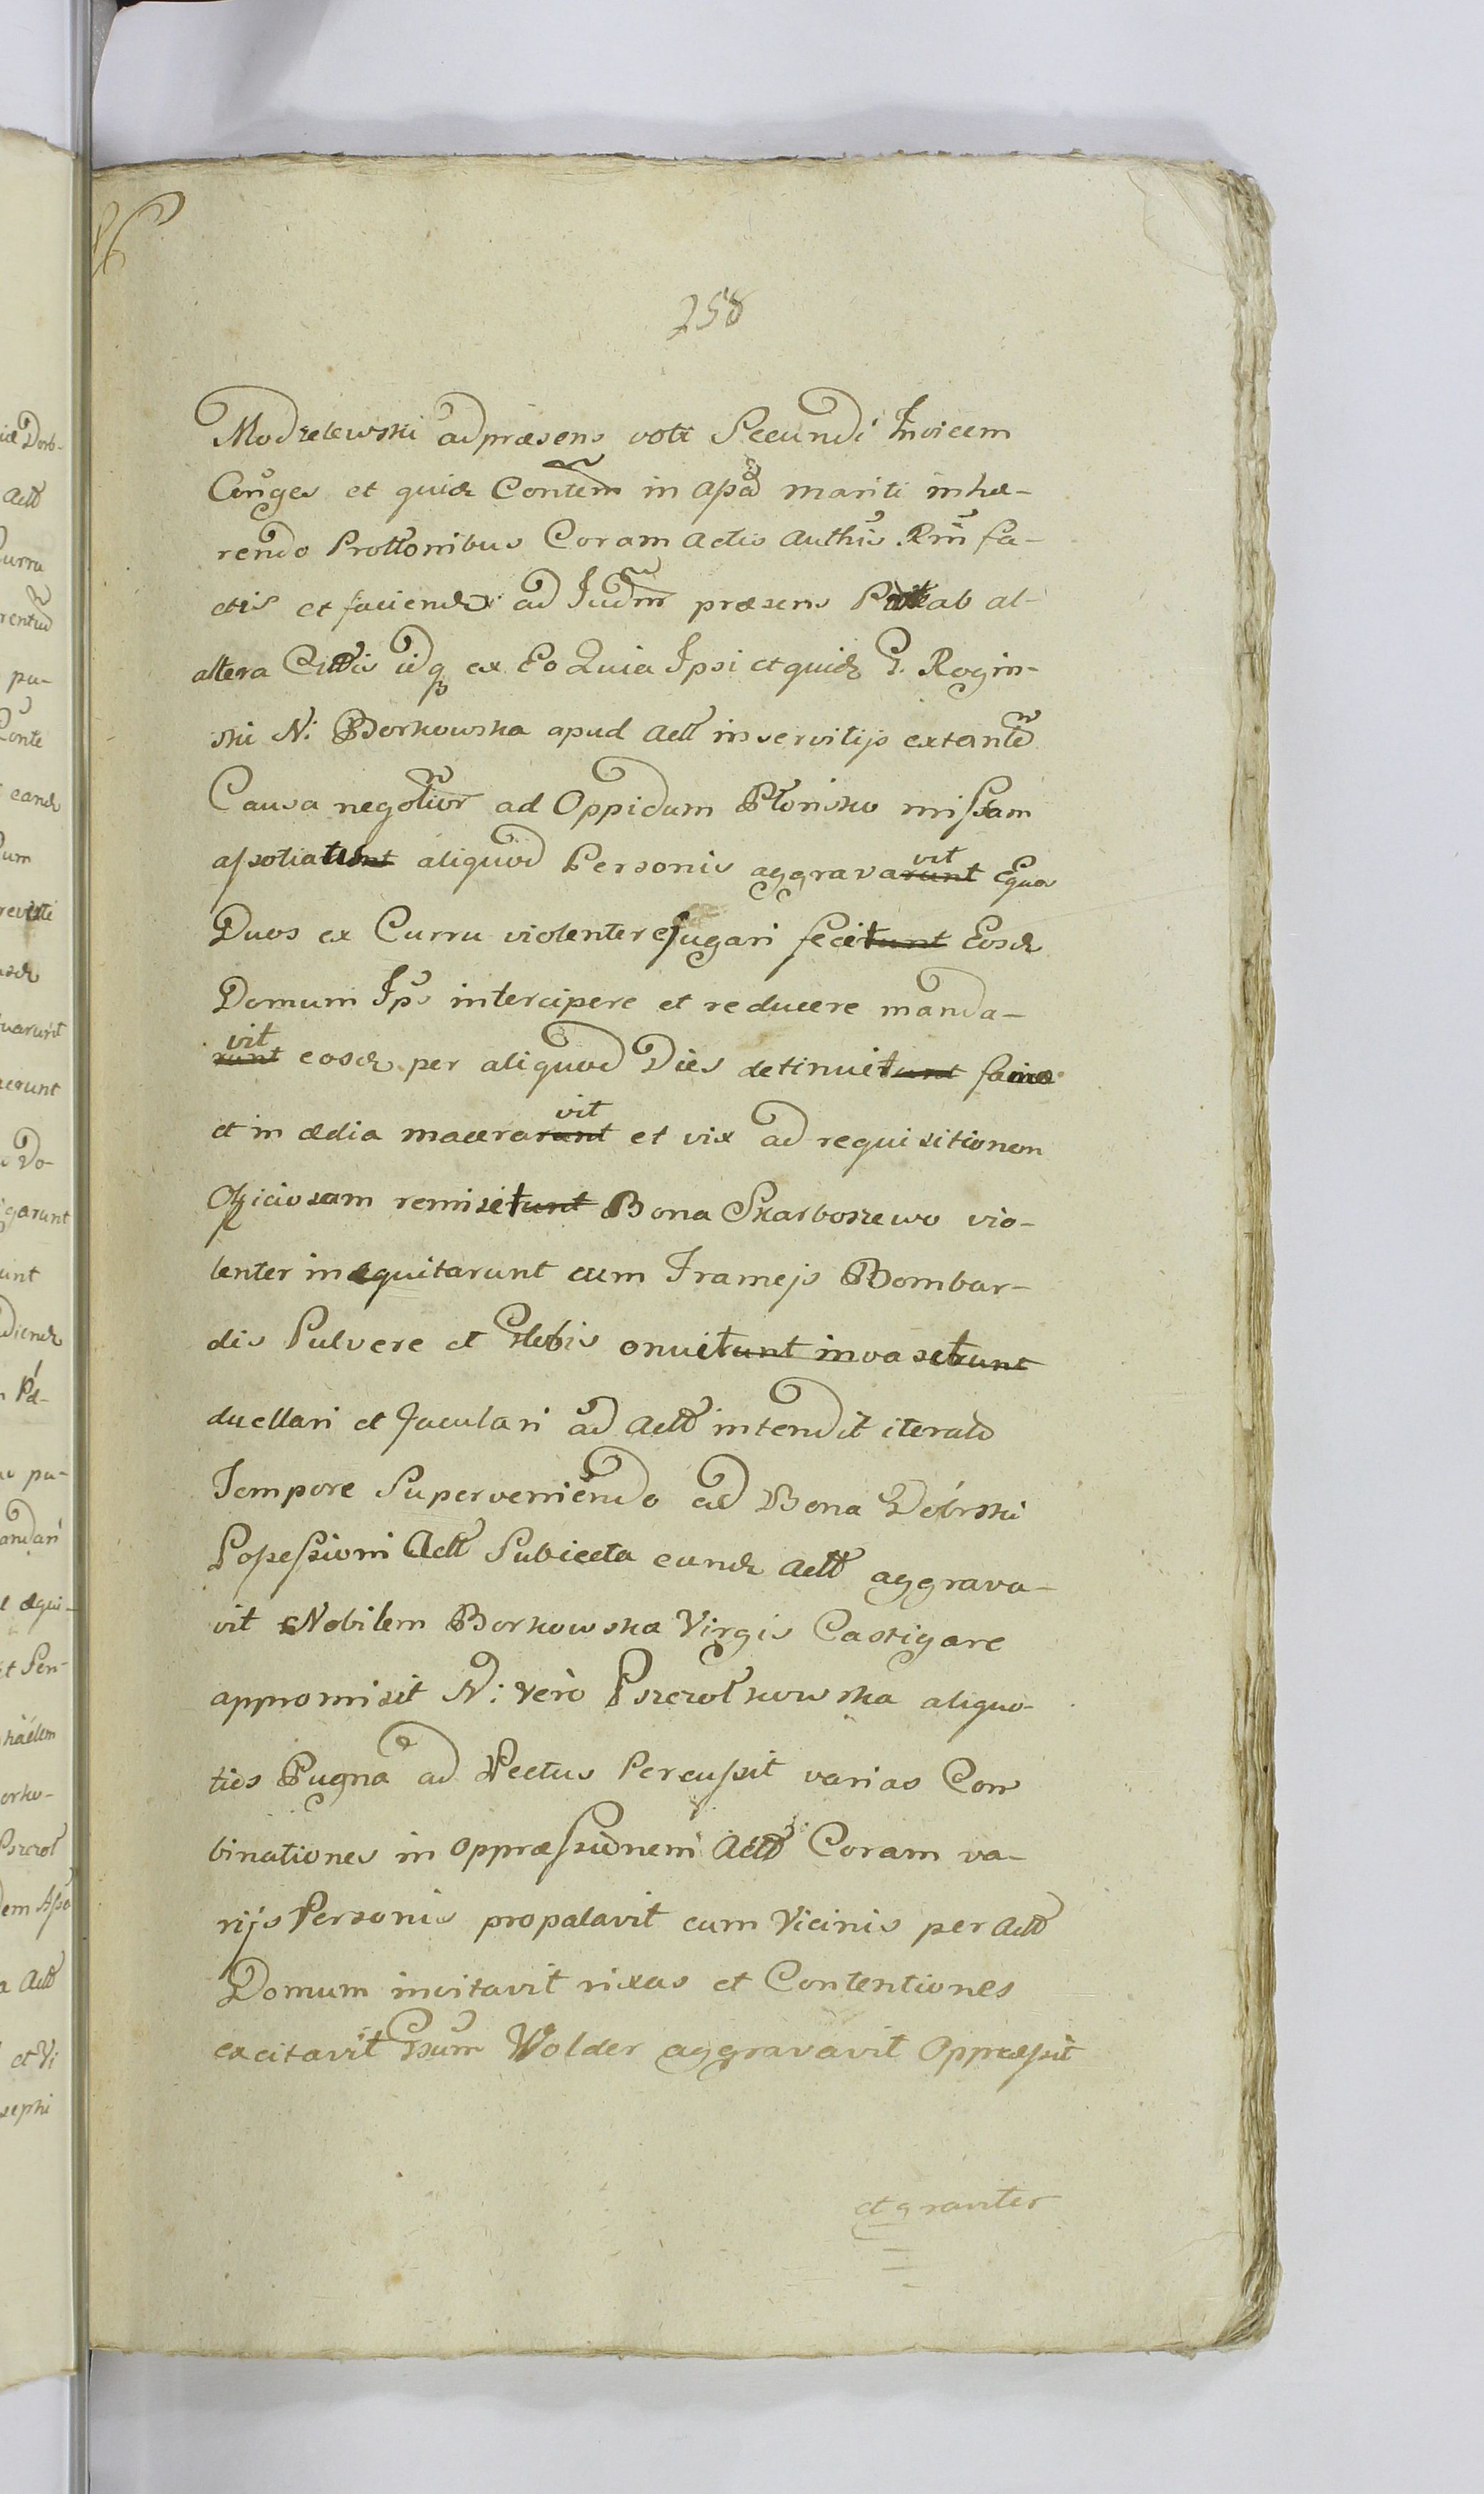 258
Modzelewski ad præsens voti Secundi Invicem
Coñges et quidꝫ Contem in aptã mariti inhæ-
rendo Prottonibus Coram Actis Authĩs Rm̃ fa-
ctis et faciendꝫ ad Judm præsens ab al-
altera Cittis idq ex Eo Quia Ipsi et quidꝫ G. Rogin-
ski N: Borkowska apud Actt in servitijs extante
Causa negotior ad Oppidum Płonsko missam
assotiatunt aliquod Personis aggravarunt vit Equos
Duos ex Curru violenter ejugari fecitunt Eosdꝫ
Domum Ips intercipere et reducere manda-
runt vit eosdꝫ per aliquod Dies detinuitunt fame
et in ædia macerarunt vit et vix ad requisitionem
Officiosam remisitunt Bona Skarboszewo vio-
lenter inæquitarunt cum Frameis Bombar-
dis Pulvere et Glebis onuitunt invasitrunt
duellari et Jaculari ad Actt intendit iterato
Tempore Superveniendo ad Bona Dobrski
Possessioni Actt Subiecta eandꝫ Actt aggrava-
vit Nobilem Borkowska Virgis Castigare
appromisit N: vero Pszczołkowska aliquo-
ties Pugna ad Pectus Percussit varias Com
binationes in oppræssionem Actt Coram va-
rijs Personis propalavit cum Vicinis per Actt
Domum invitavit rixas et Contentiones
excitavit Gsum Wolder aggravavit Oppræssit
et graviter